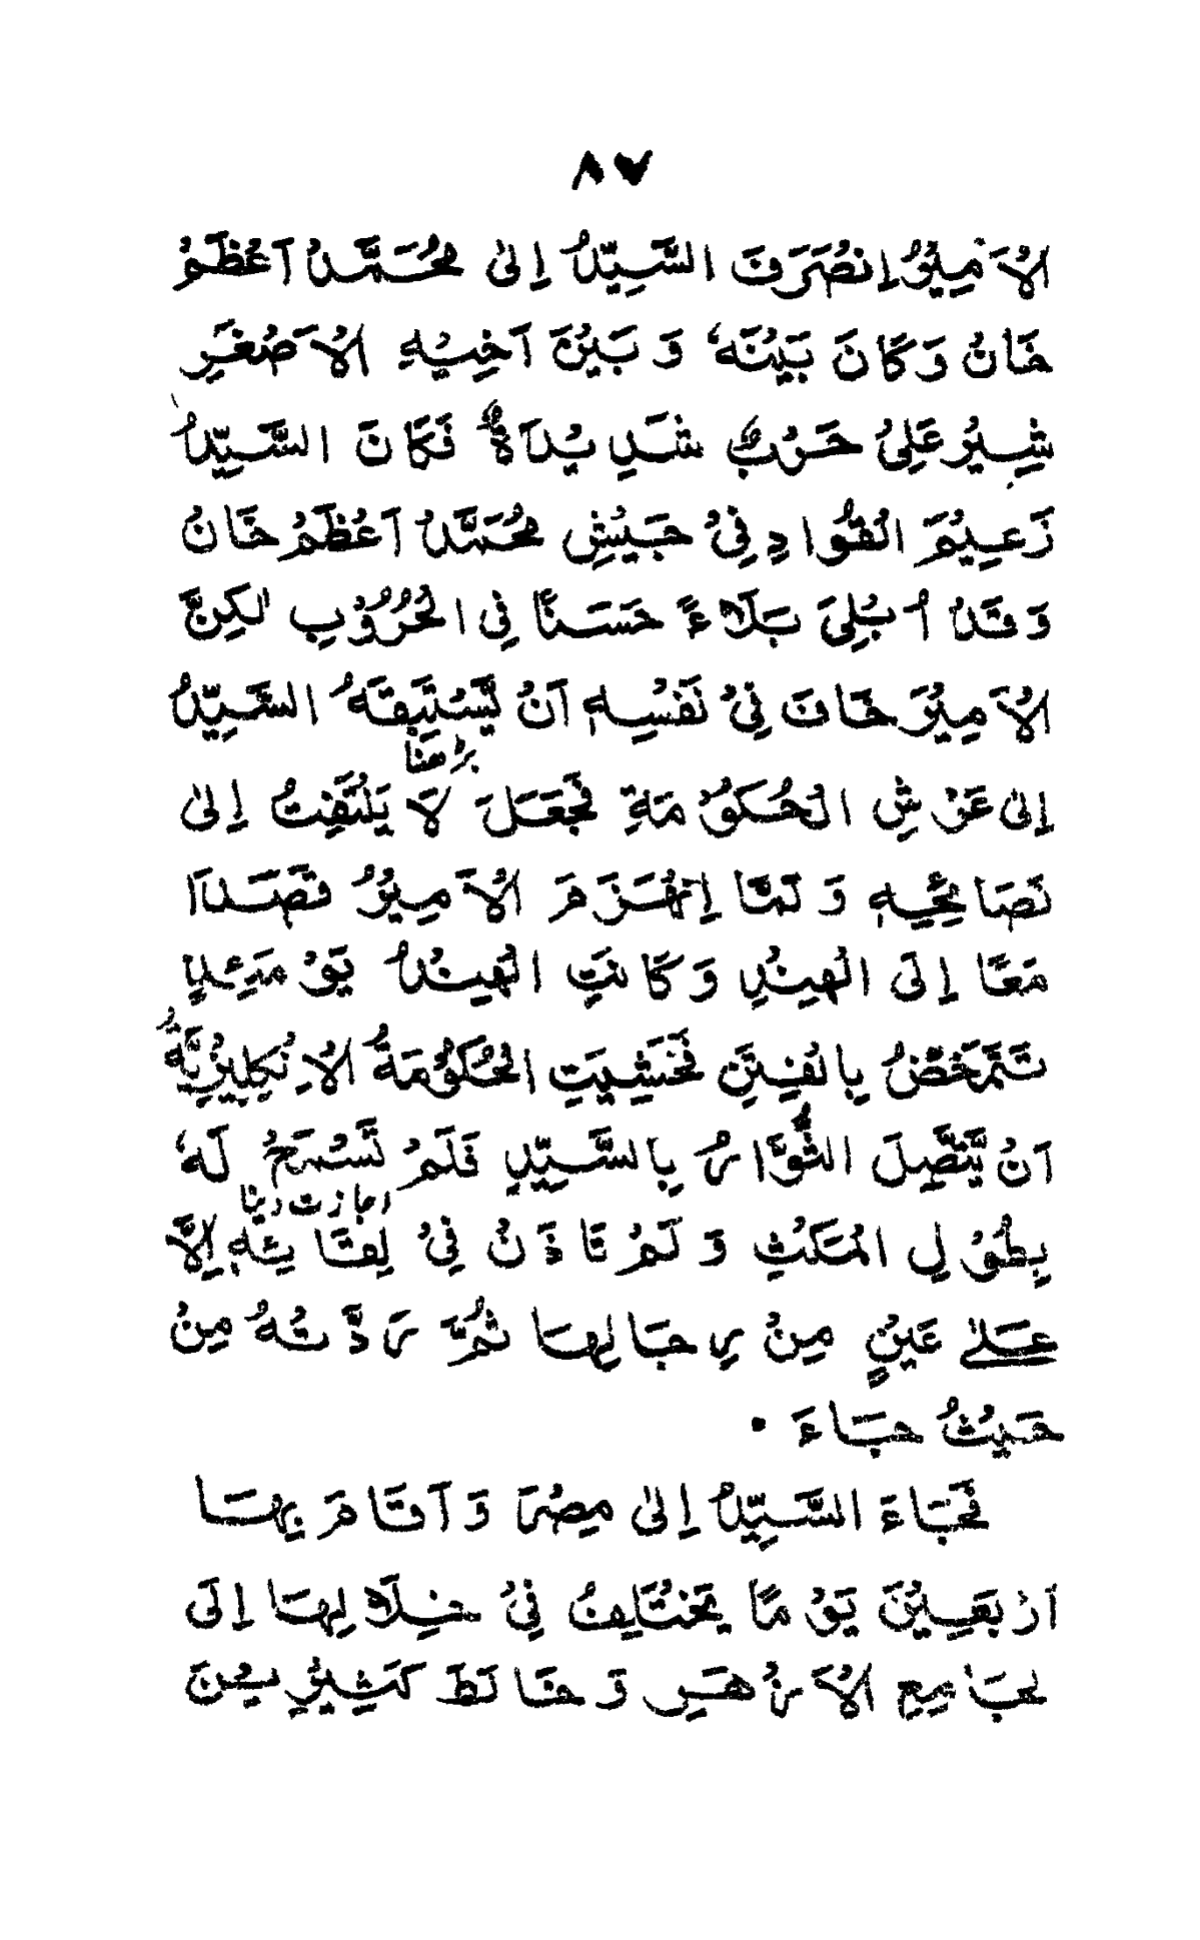 ٨٧
الْاَمِيْرُ اِنْصَرَفَ السَّيِّدُ اِلىٰ مُحَمَّدْ اَعْظَمْ
خَانْ وَكَانَ بَيْنَهٗ وَ بَيْنَ اَخِيْهِ الْاَصْغَرِ
شِيْرُ عَلِيْ حَرْبٌ شَدِيْدَةٌ فَكَانَ السَّيِّدُ
زَعِيْمَ الْقُوَّادِ فِيْ جَيْشِ مُحَمَّدْ اَعْظَمْ خَانْ
وَقَدْ اُبْلِىَ بَلَاءً حَسَنًا فِي الْحُرُوْبِ لٰكِنَّ
الْاَمِيْرَ خَافَ فِيْ نَفْسِهٖ اَنْ يَّسْتَبِقَهُ السَّيِّدُ
بڑھنا
اِلىٰ عَرْشِ الْحُكُوْمَةِ فَجَعَلَ لَا يَلْتَفِتُ اِلىٰ
نَصَائِحِهٖ وَ لَمَّا اِنْهَزَمَ الْاَمِيْرُ قَصَدَا
مَعًا اِلَى الْهِنْدِ وَكَانَتِ الْهِنْدُ يَوْمَئِذٍ
تَتَمَخَّضُ بِالْفِتَنِ فَخَشِيَتِ الْحُكُوْمَةُ الْاِنْكِلِيْزِيَّةُ
اَنْ يَّتَّصِلَ الثُّوَّارُ بِالسَّيِّدِ فَلَمْ تَسْمَحْ لَهٗ
اجازت دینا
بِطُوْلِ الْمَكْثِ وَ لَمْ تَاذَنْ فِيْ لِقَائِهٖ اِلَّا
عَلىٰ عَيْنٍ مِنْ رِجَالِهَا ثُمَّ رَدَّتْهُ مِنْ
حَيْثُ جَاءَ ۰
فَجَاءَ السَّيِّدُ اِلىٰ مِصْرَ وَ اَقَامَ بِهَا
اَرْبَعِيْنَ يَوْمًا يَخْتَلِفُ فِيْ خِلَالِهَا اِلَى
الْجَامِعِ الْاَزْهَرِ وَ خَالَطَ كَثِيْرِيْنَ